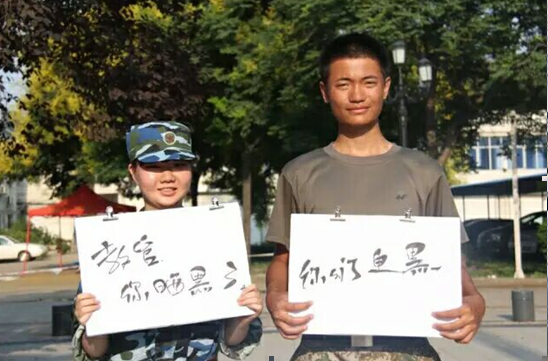 教官
你晒黑了
你们黑